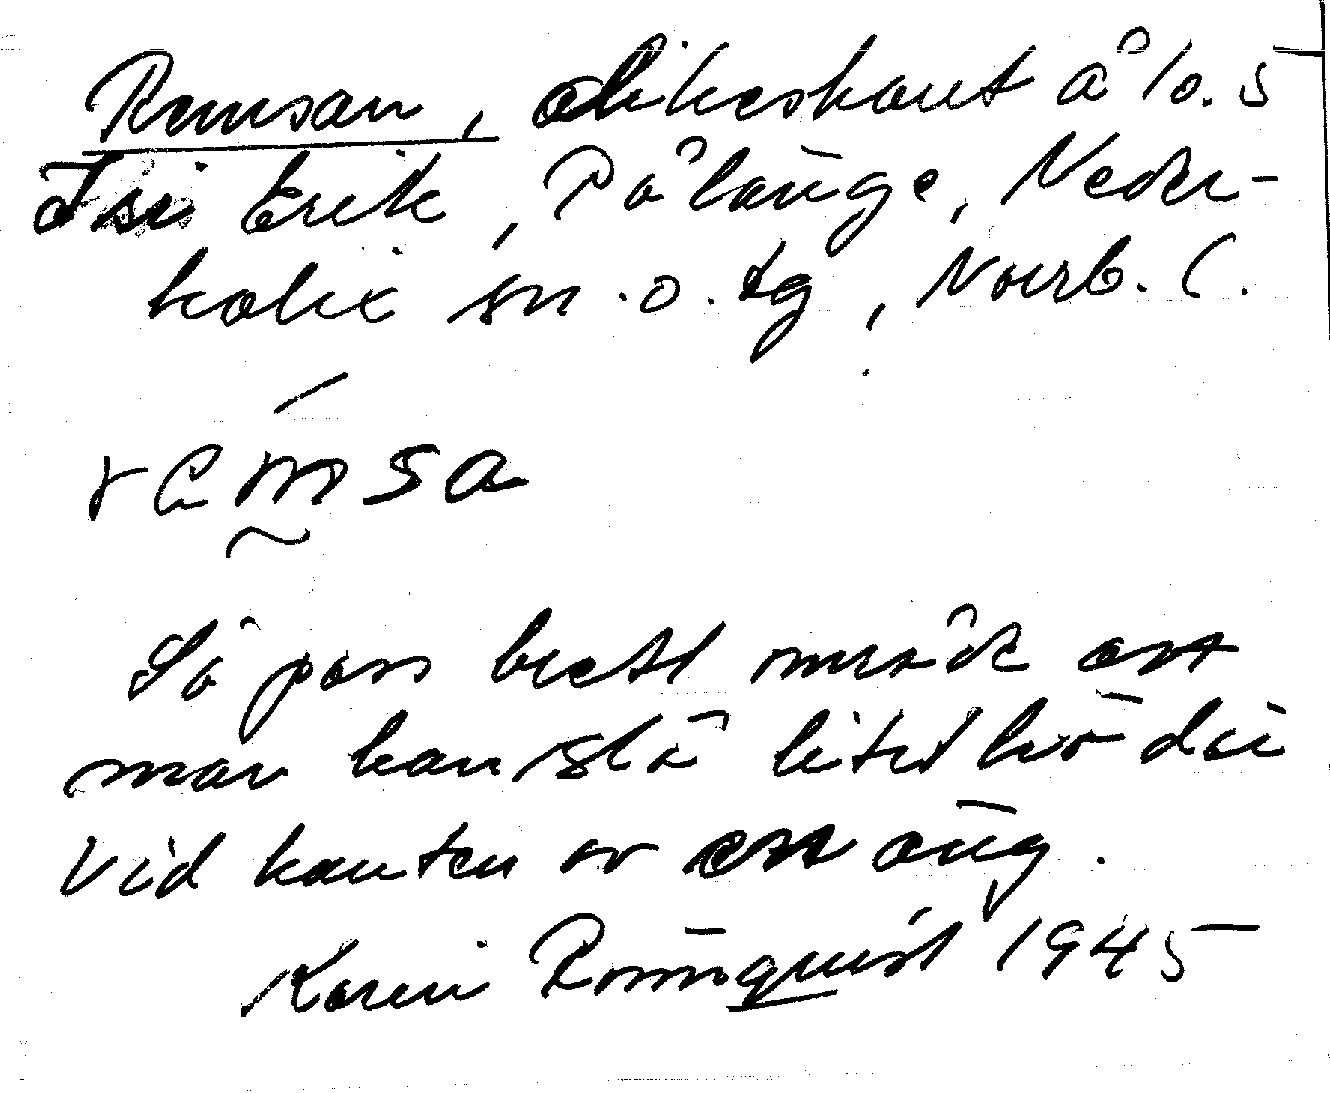 Remsan, dikeskant å lo. 5
Isi Erik, Pålänge, Neder-
kalix sn. o. tg, Norrb. l.
remsa
Så pass brett område att
man kan slå litet hö där
vid kanten av en äng.
Karin Rönnquist 1945